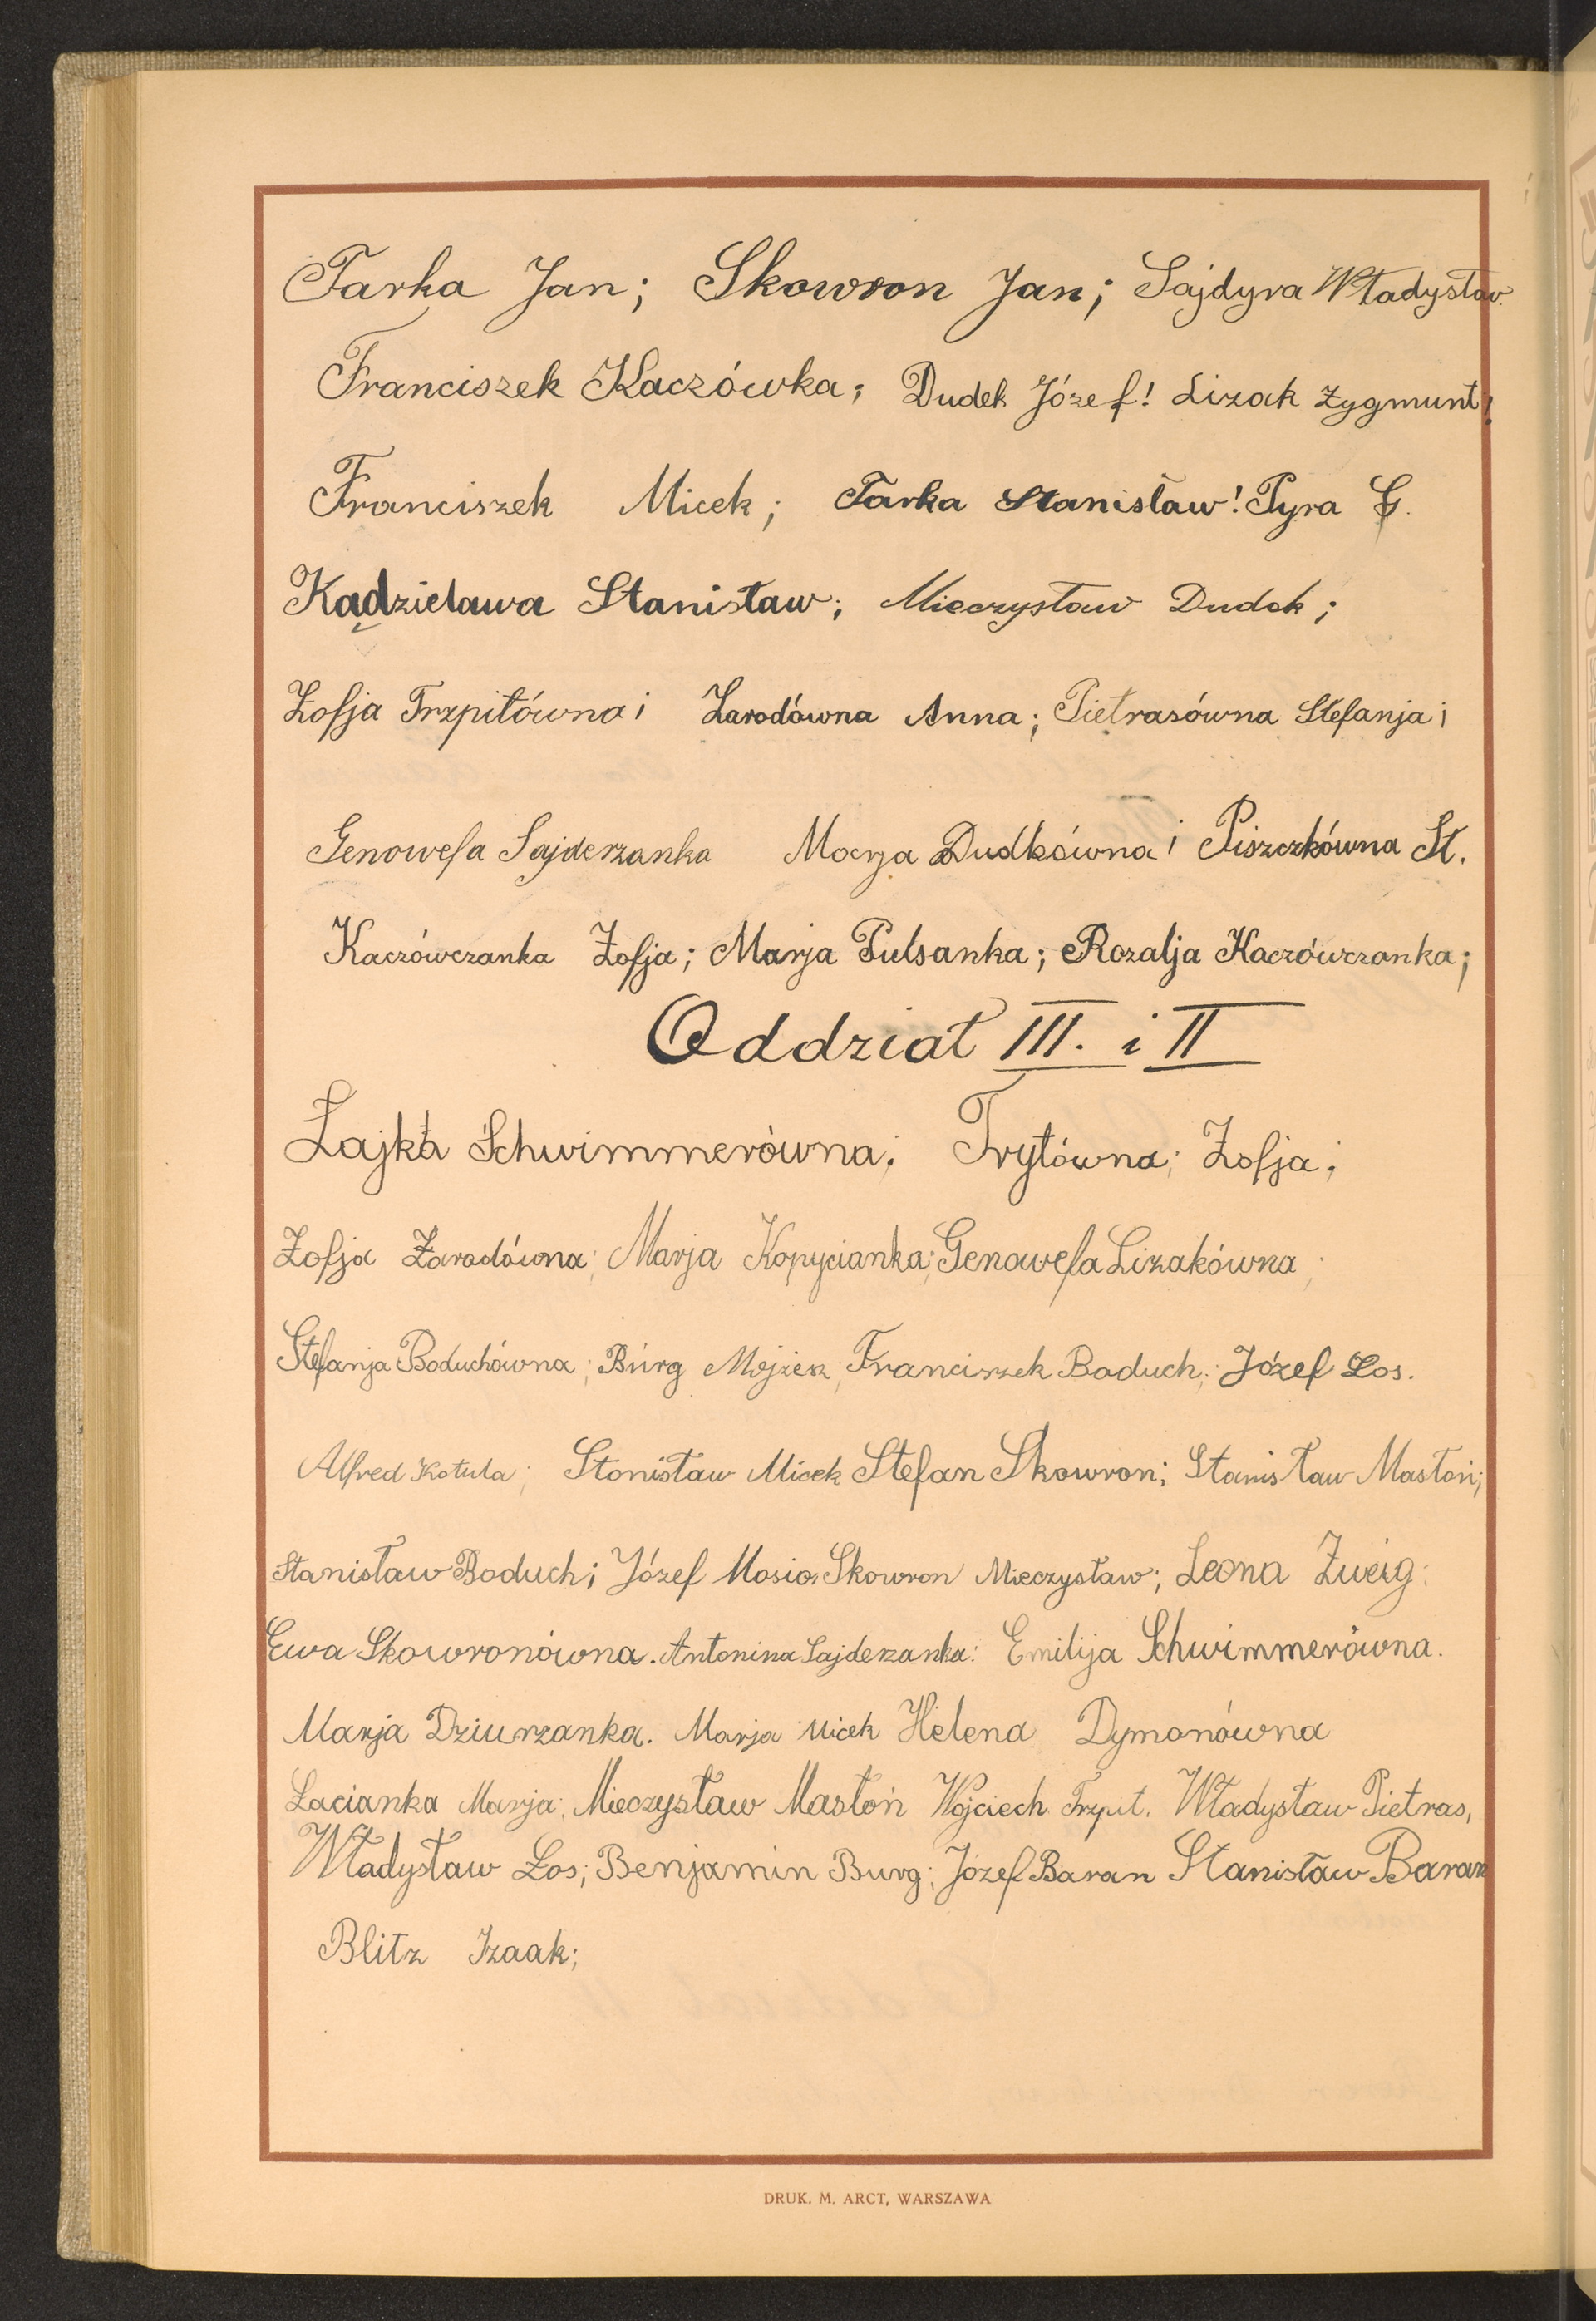 Tarka Jan; Skowron Jan; Sajdyra Władysław.
Franciszek Kaczówka; Dudek Józef! Lizak Zygmunt!
Franciszek Micek; Tarka Stanisław! Pyra G.
Kądzielawa Stanisław; Mieczysław Dudek;
Zofja Trzpitówna; Zarodówna Anna; Pietrasówna Stefanja;
Genowefa Sajderzanka Marja Dudkówna; Piszczkówna St.
Kaczówczanka Zofja; Marja Pulsanka; Rozalja Kaczówczanka;
Oddział III. i II
Łajka Schwimmerówna; Trytówna; Zofja;
Zofja Zaradówna; Marja Kopycianka; Genowefa Lizakówna;
Stefanja Boduchówna; Burg Mojżesz, Franciszek Boduch; Józef Łos.
Alfred Kotula; Stanisław Micek Stefan Skowron; Stanisław Mastoń;
Stanisław Boduch; Józef Skowron Mieczysław; Leona Zweig;
Ewa Skowronówna. Antonina Sajderzanka: Emilija Schwimmerówna.
Marja Dziurzanka. Marja Micek Helena Dymonówna
Lacianka Marja; Mieczysław Mastoń Wojciech Trzpit. Władysław Pietras,
Władysław Łos; Benjamin Burg; Józef Baran Stanisław Baran
Blitz Izaak;
DRUK. M. ARCT, WARSZAWA